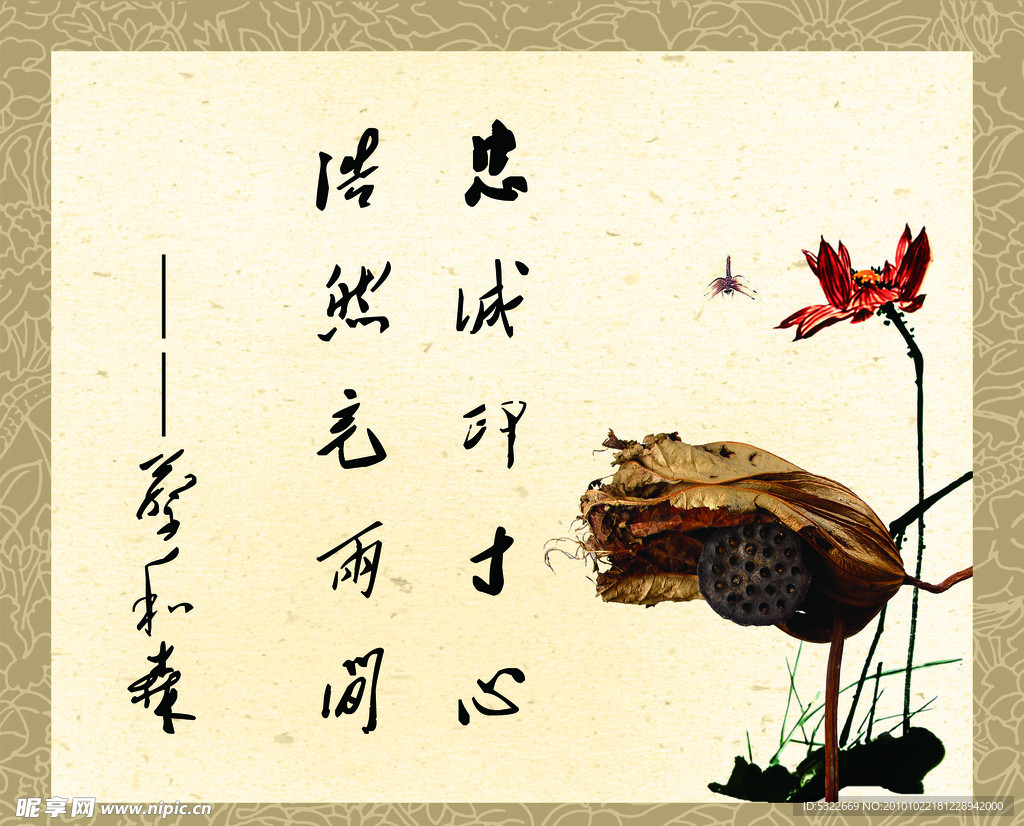 忠诚印寸心
浩然充兩間
——蔡和森
昵享网 www.nipic.cn
ID:5322669 NO:20101022181228942000